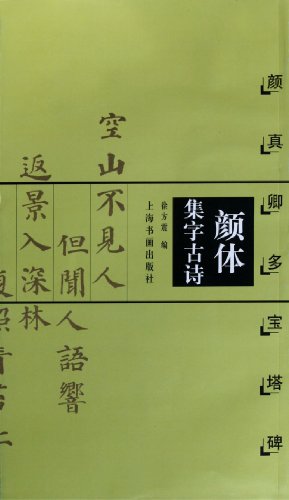 颜真卿多宝塔碑
颜体
集字古诗
徐方震 编
上海书画出版社
空山不見人
但聞人語響
返景入深林
復照青苔上